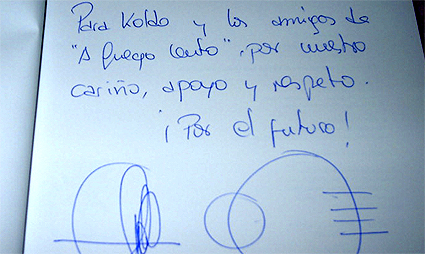 Para Koldo y los amigos de
"A fuego lento", por vuestro
cariño, apoyo y respeto.
¡Por el futuro!